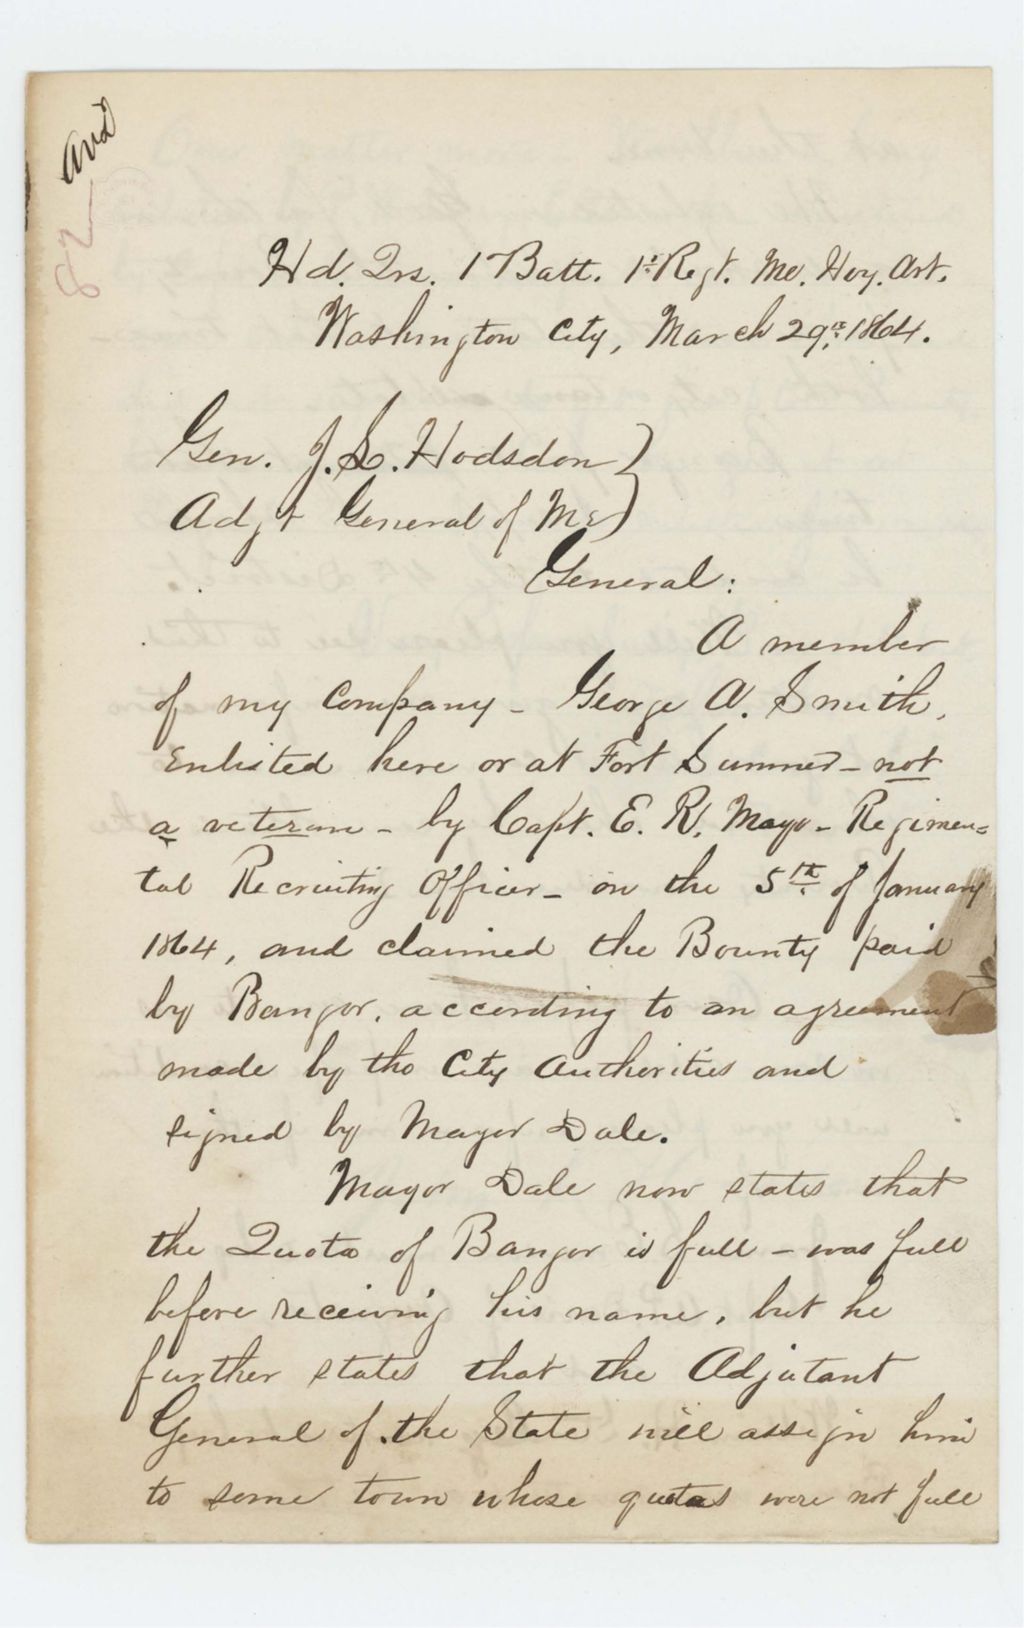 and
82
Hd. Qrs. 1 Batt. 1st Regt. Me. Hvy. Art.
Washington City, March 29th, 1864.
Gen. J. L. Hodsdon
Adjt General of Me
General:
A member
of my Company - George A. Smith,
Enlisted here or at Fort Sumner - not
a veteran - by Capt. E. R. Mayo - Regimen=
tal Recruiting Officer - on the 5th of January
1864, and claimed the Bounty paid
by Bangor, according to an agreement
made by the City Authorities and
signed by Mayor Dale.
Mayor Dale now states that
the Quota of Bangor is full - was full
before receiving his name, but he
further states that the Adjutant
General of the State will assign him
to some town whose quotas were not full